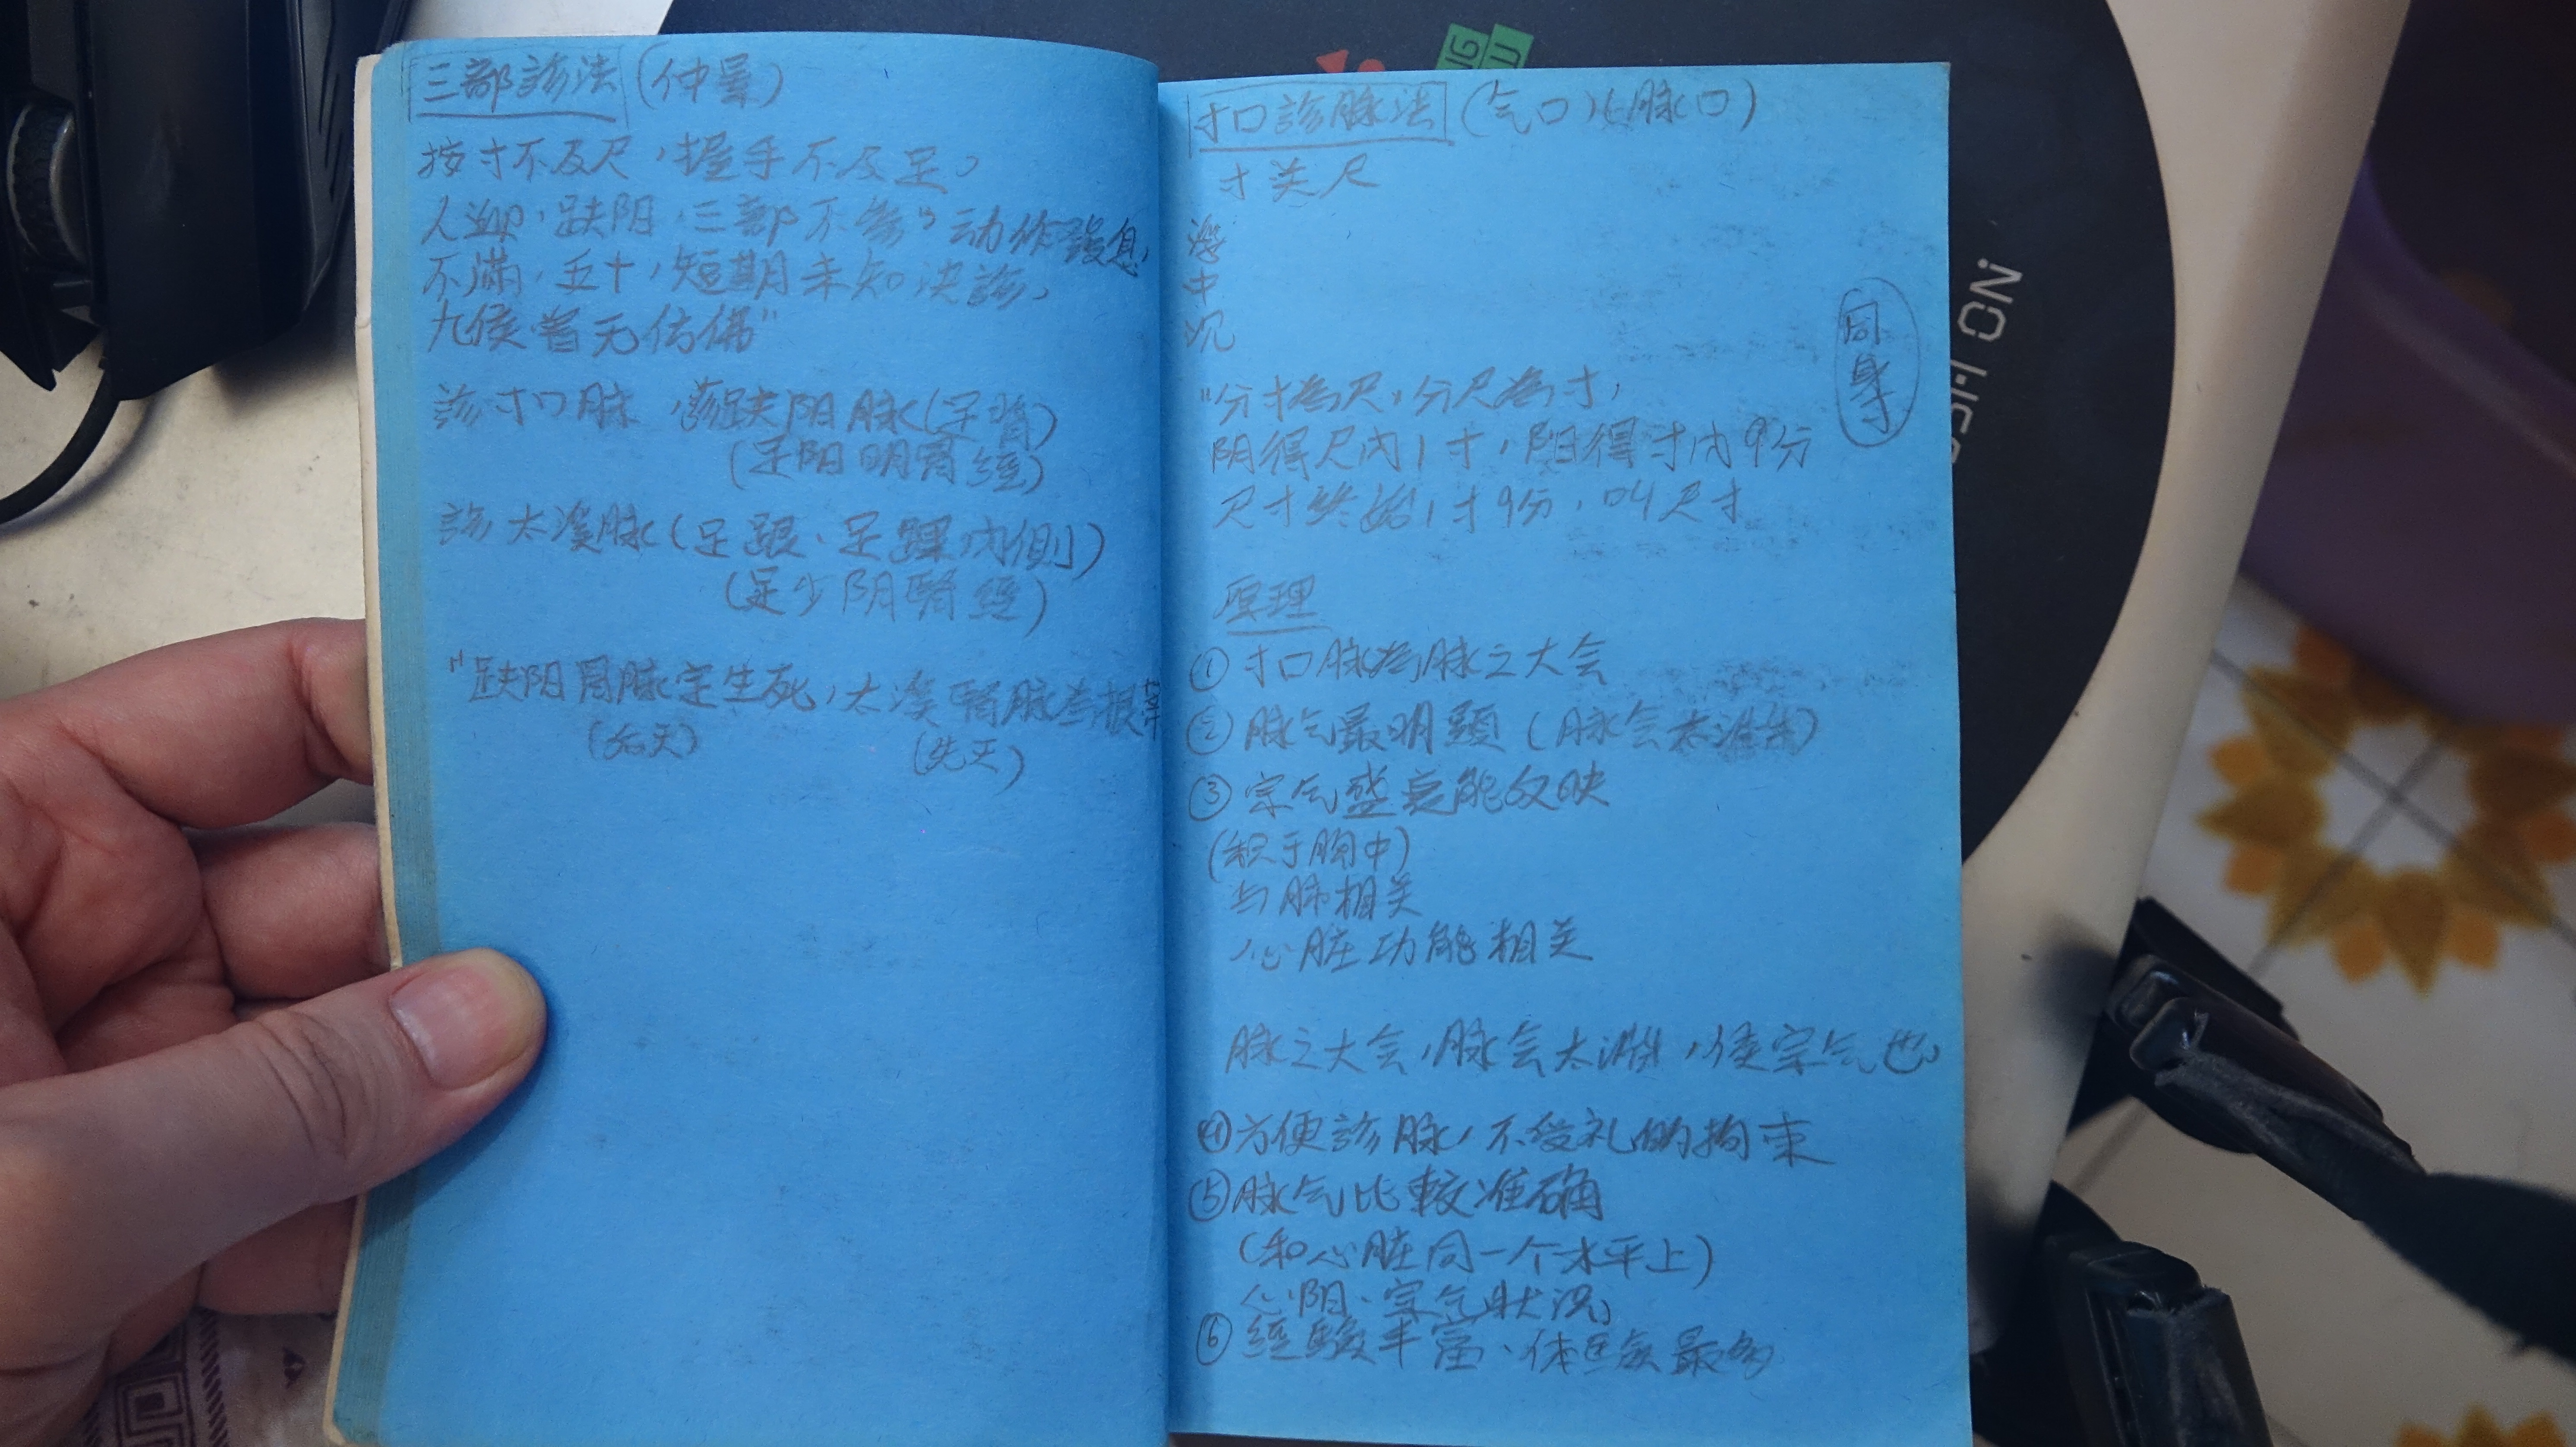 三部診法 (仲景)
按寸不及尺，握手不及足，
人迎，趺阳，三部不参，动作發息，
不滿，五十，短期未知決診，
九候曾无仿佛"
診寸口脉，診趺阳脉(足背)
(足阳明胃經)
診太溪脉(足跟、足踝内側)
(足少阴腎經)
"趺阳胃脉定生死，太溪腎脉為根
(后天) (先天)
寸口診脉法 (气口)(脉口)
寸 关 尺
浮
中
沉
同身寸
"分寸為尺，分尺為寸，
阴得尺内1寸，阳得寸内9分
尺寸終始1寸9分，叫尺寸
原理
① 寸口脉為脉之大会
② 脉气最明顯 (脉会太淵)
③ 宗气盛衰能反映
(积于胸中)
与肺相关
心脏功能相关
脉之大会，脉会太淵，候宗气也，
④方便診脉，不受礼的拘束
⑤脉气比較准确
(和心脏同一个水平上)
心阴、宗气狀況
⑥ 經驗丰富、体医案最多
NG
U
SH ON